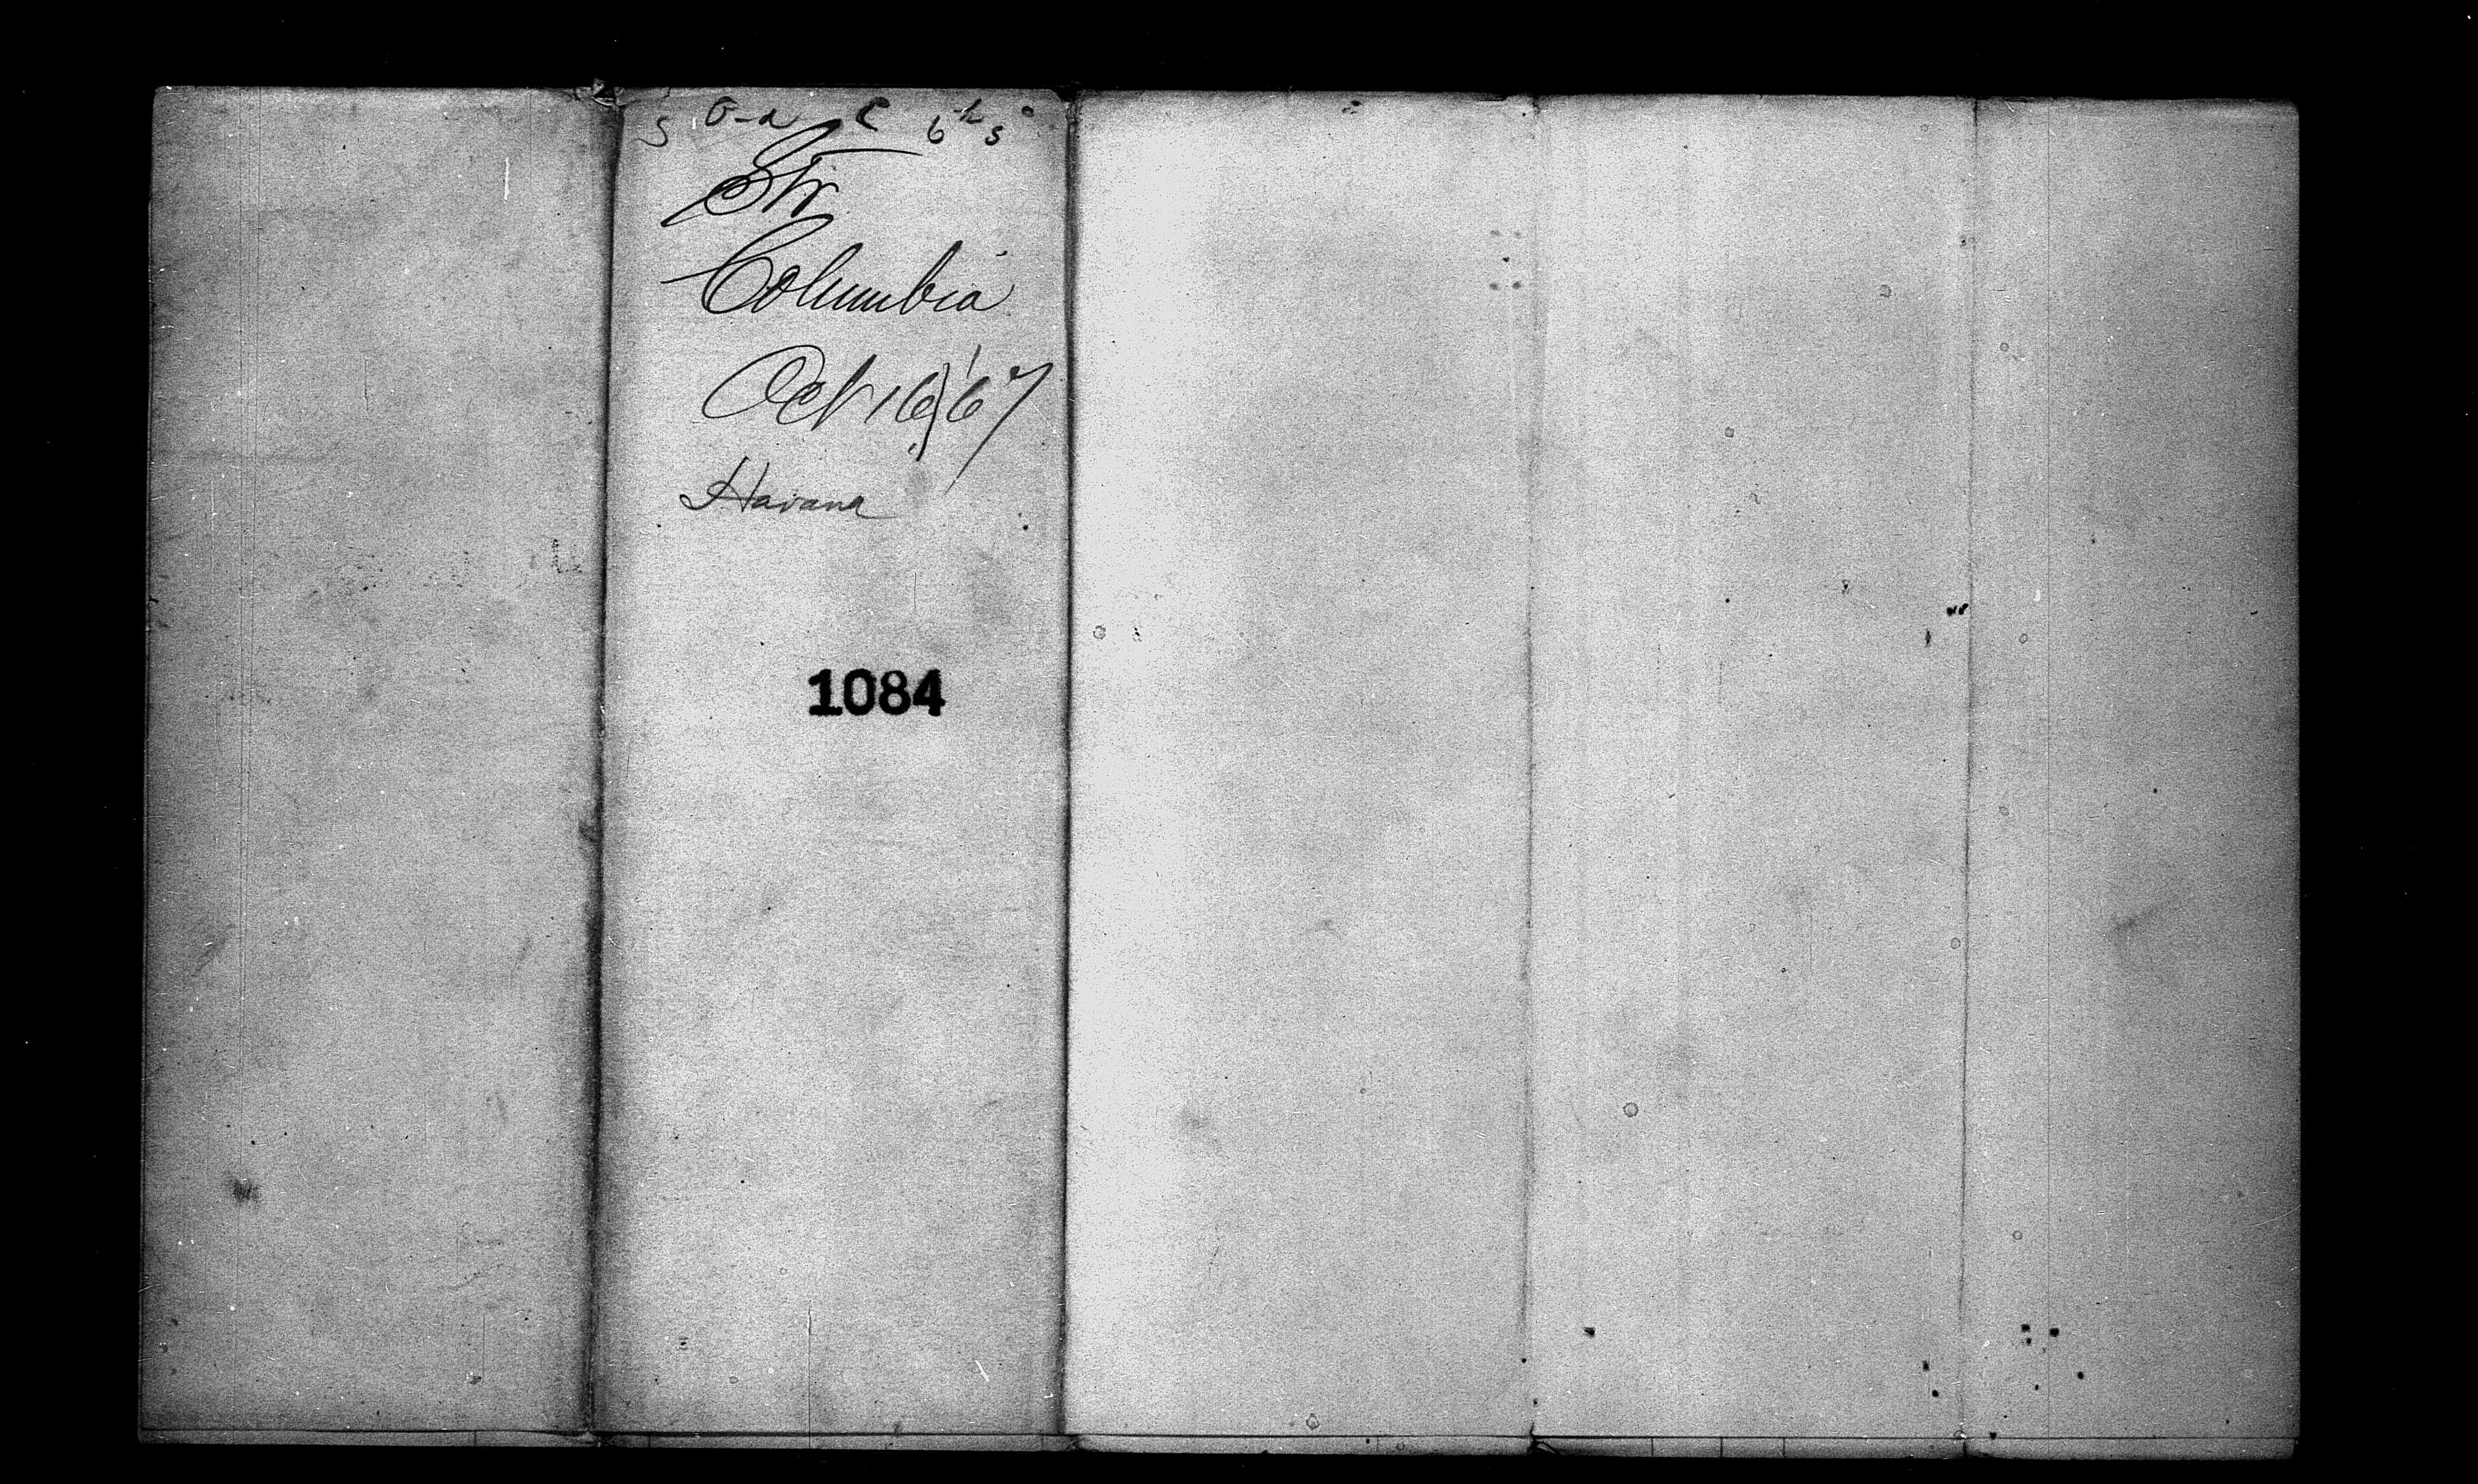 Str
Columbia
Oct 16, '67
Havana
1084